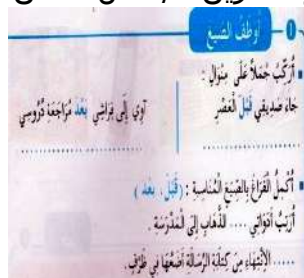 1 - أُوَظِّفُ الصِّيَغَ
▪ أُرَكِّبُ جُمَلاً عَلَى مِنْوَالِ :
جَاءَ صَدِيقِي قَبْلَ الْعَصْرِ
آوِي إِلَى فِرَاشِي بَعْدَ مُرَاجَعَةِ دُرُوسِي
....................
....................
▪ أُكْمِلُ الْفَرَاغَ بِالصِّيَغِ الْمُنَاسِبَةِ : (قَبْلَ ، بَعْدَ )
أُرَتِّبُ أَدَوَاتِي .... الذَّهَابِ إِلَى الْمَدْرَسَةِ .
..... الْاِنْتِهَاءِ مِنْ كِتَابَةِ الرِّسَالَةِ أَضَعُهَا فِي ظَرْفٍ.